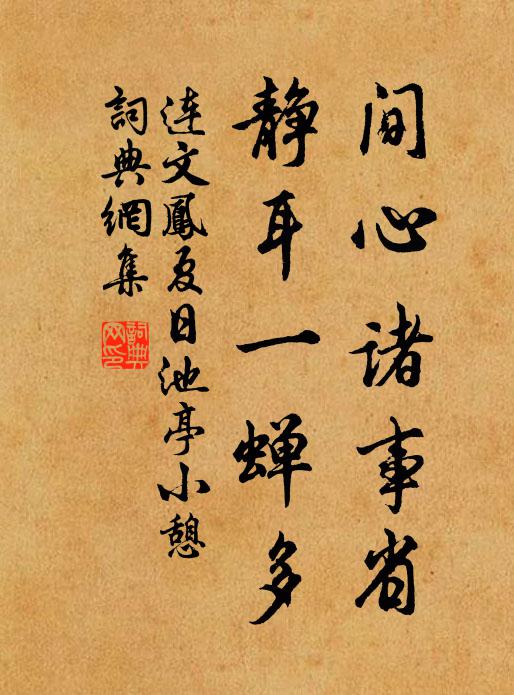 閒心諸事省
靜耳一蟬多
连文鳳夏日池亭小憩
詞典網集
詞典
网印